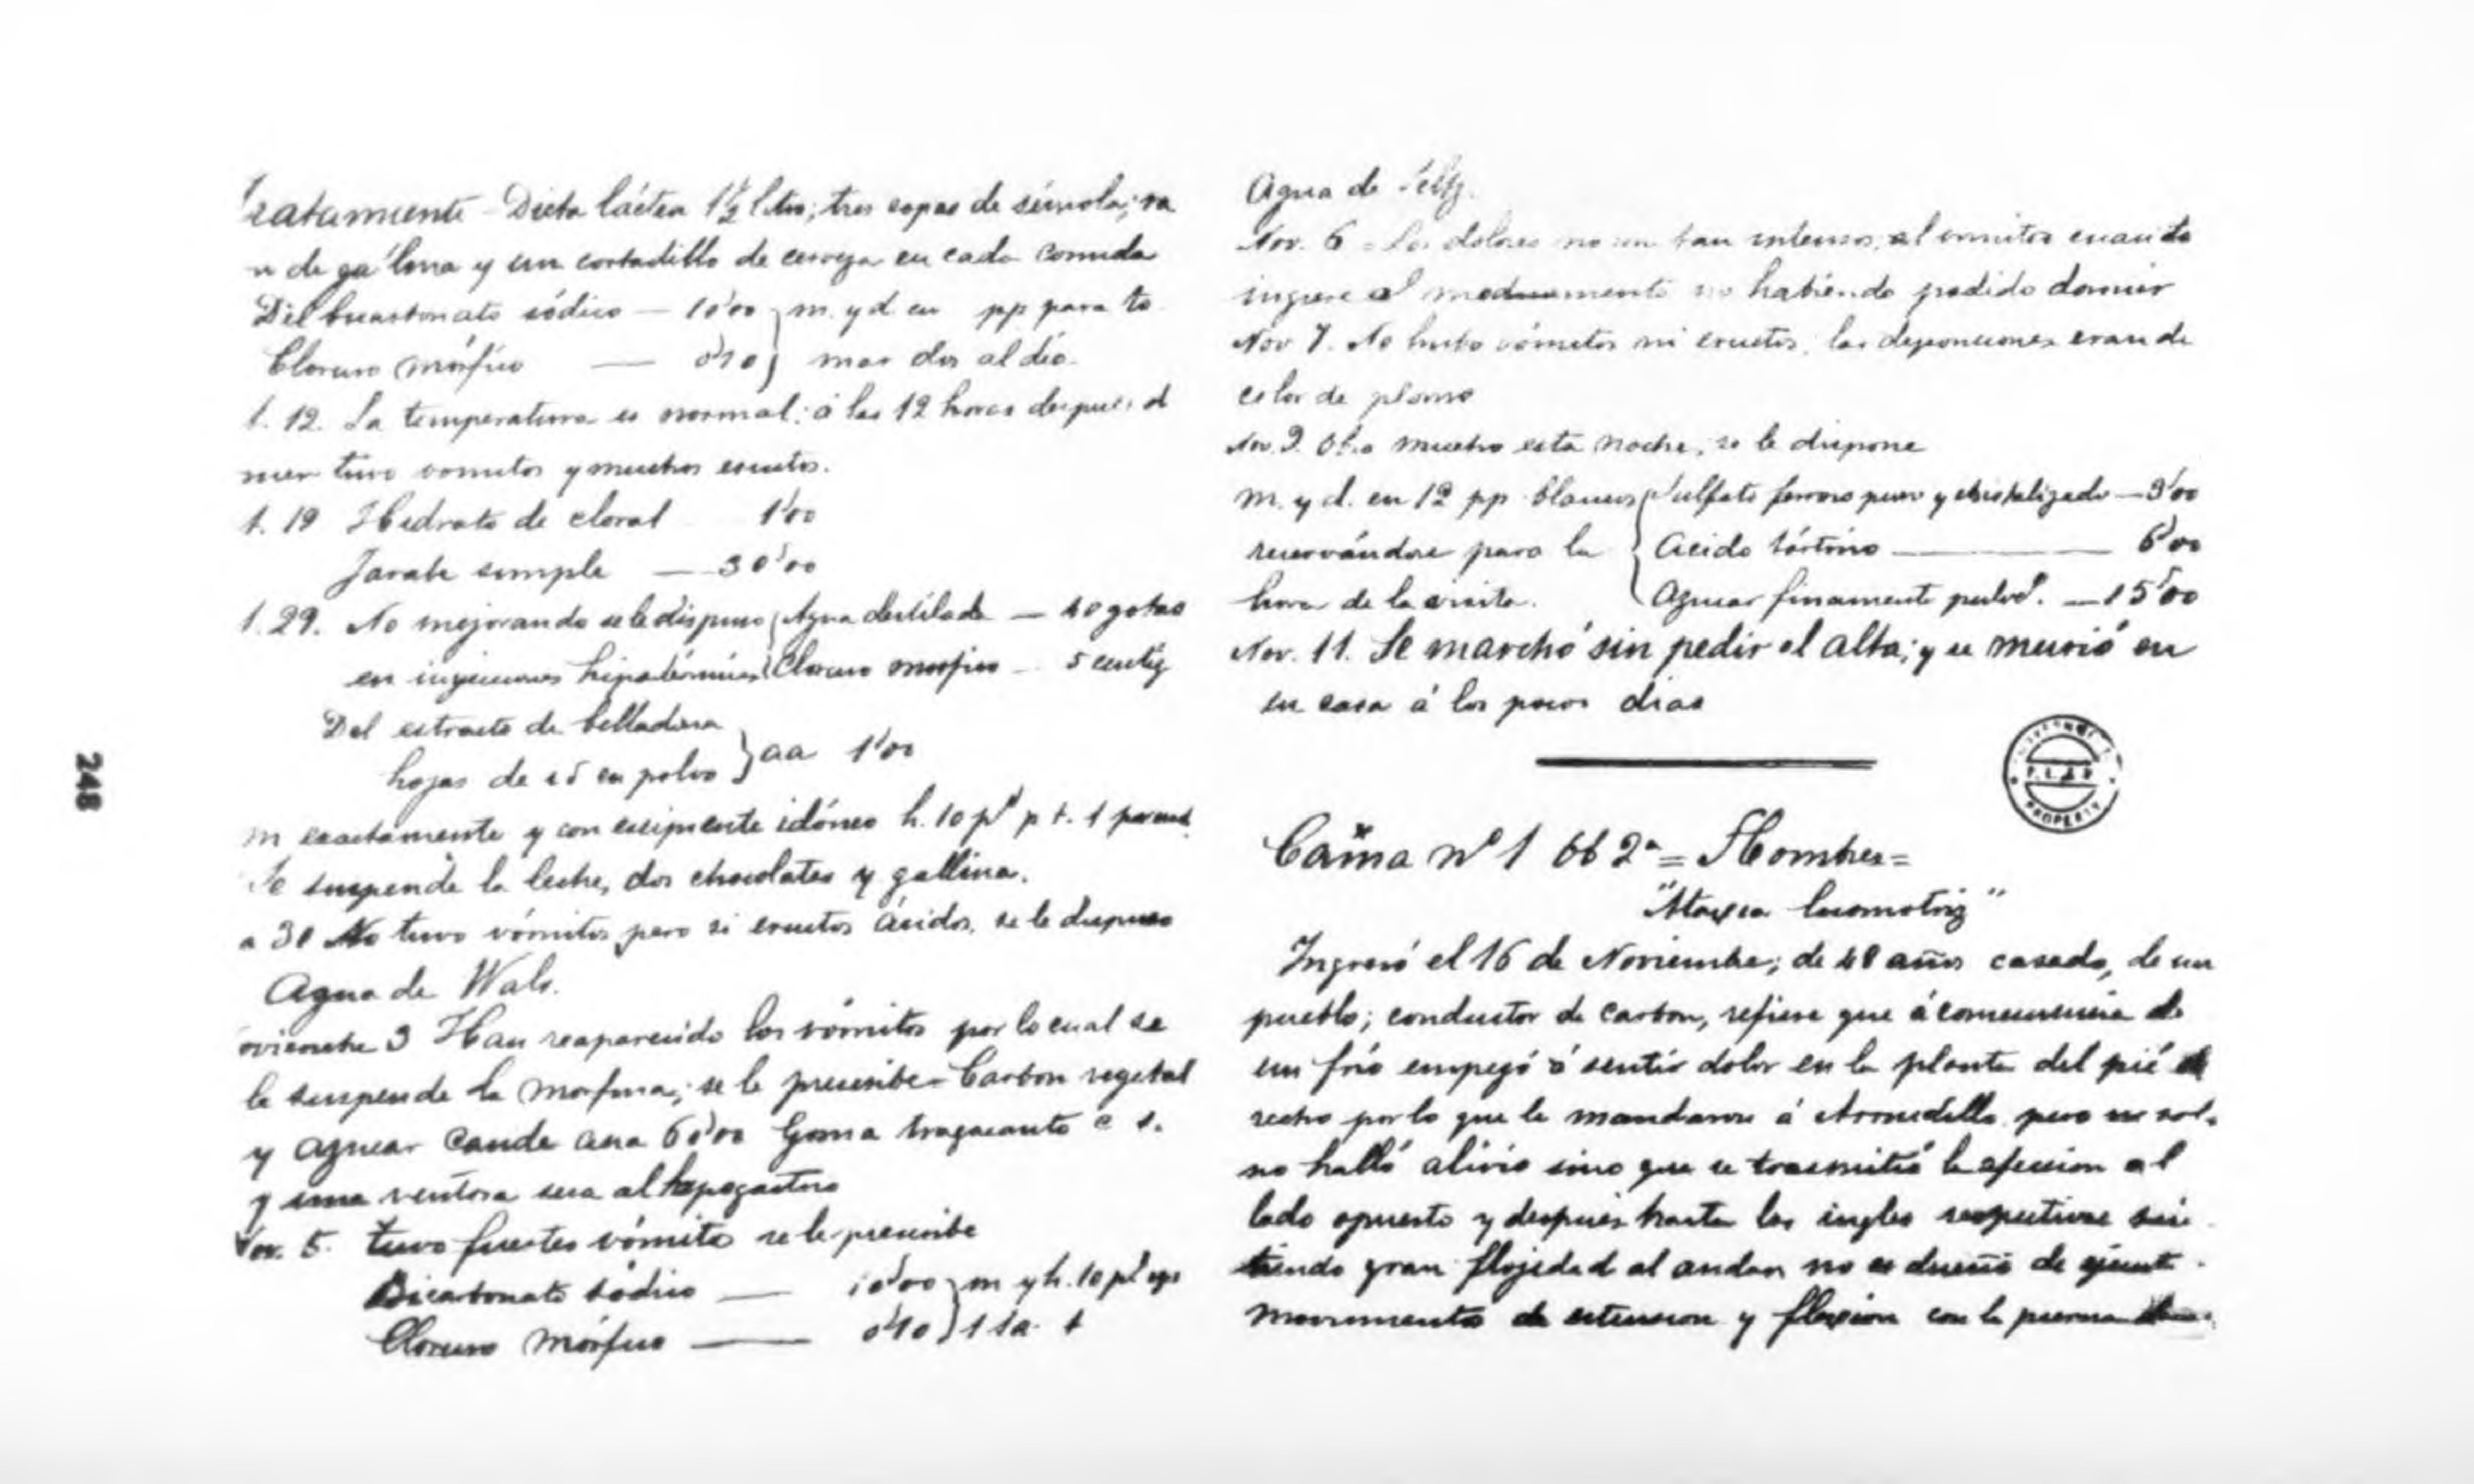 Tratamiento - Dieta láctea 1½ litro; tres sopas de sémola; ra
n de gallina y un cortadillo de cerveza en cada comida
Del bicarbonato sódico — 10'00 } m. y d. en pp. para to
Cloruro mórfico — 0'10 } mar dos al día.
t. 12. La temperatura es normal: á las 12 horas después d
mer tuvo vomitos y muchos eructos.
t. 19 Hidrato de cloral 1'00
Jarabe simple — 30'00
t. 29. No mejorando se le dispuso { Agua destilada — 40 gotas
en inyecciones hipodérmicas { Cloruro morfico — 5 centig
Del estracto de belladona
hojas de id en polvo } aa 1'00
m exactamente y con escipiente idóneo h. 10 pl p t. 1
Se suspende la leche, dos chocolates y gallina.
a 30 No tuvo vómitos pero si eructos ácidos, se le dispuso
Agua de Wals.
oviembre 3 Han reaparecido los vómitos por lo cual se
le suspende la morfina; se le prescribe = Carbon vegetal
y azucar cande ana 60'00 Goma tragacanto c s.
y una ventosa seca al hepogastrio
Nov. 5. tuvo fuertes vómitos se le prescribe
Bicarbonato sódico — 10'00 } m y h. 10 pl
Cloruro mórfico — 0'10 } 1
Agua de Seltz.
Nov. 6 - Los dolores no son tan intensos, el vomitos cuando
ingiere el medicamento no habiendo podido dormir
Nov 7. No hubo vómitos ni eructos; las deposiciones eran de
color de plomo
Nov. 9. mucho esta noche; se le dispone
m. y d. en 12 pp blancos { Sulfato ferroso puro y cristalizado — 3'00
reservándose para la { Acido tártrico — 6'00
hora de la visita. { Azucar finamente pulvd. — 15'00
Nov. 11. Se marchó sin pedir el alta; y se murió en
su casa á los pocos dias
PROPERTY
Cama nº 1 66 2ª = Hombres =
"Ataxia locomotriz"
Ingresó el 16 de Noviembre; de 48 años casado, de un
pueblo; conductor de carbon, refiere que á consecuencia de
un frío empezó á sentir dolor en la planta del pié de
recho por lo que le mandaron á Arnedillo pero no sol.
no halló alivio sino que se trasmitió la afeccion al
lado opuesto y después hasta las ingles respectivas sin
tiendo gran flojedad al andar no es dueño de ejecut
movimientos de estension y flexion con la pierna
248